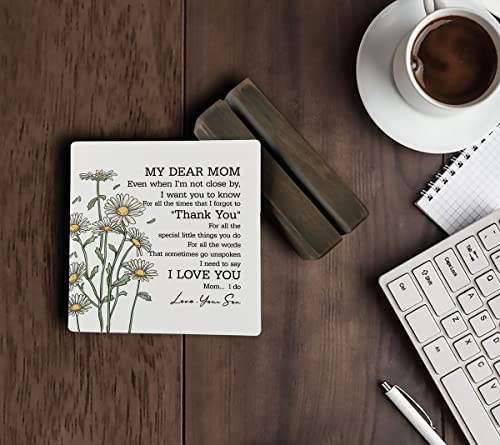 MY DEAR MOM
Even when I'm not close by,
I want you to know
For all the times that I forgot to
"Thank You"
For all the
special little things you do
For all the words
That sometimes go unspoken
I need to say
I LOVE YOU
Mom... I do
Love, Your Son